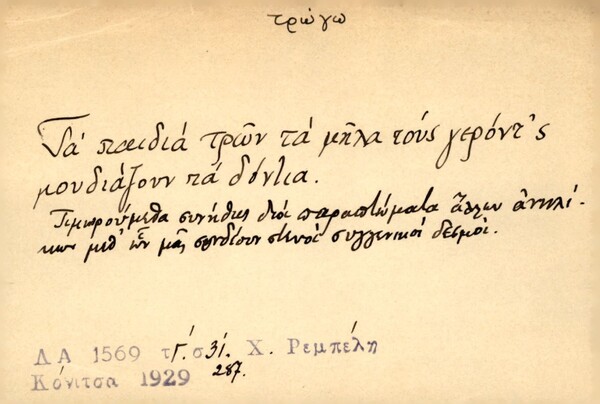 τρώγω
Τά παιδιά τρῶν τά μῆλα τούς γερόντ'ς
μουδιάζουν τά δόντια.
Τιμωρούμεθα συνήθως διά παραπτώματα ἄλλων ἀνηλί-
κων μεθ' ὧν μᾶς συνδέουν στενοί συγγενικοί δεσμοί.
ΔΑ 1569 τ Γ΄. σ 31. Χ. Ρεμπέλη
Κόνιτσα 1929 287.